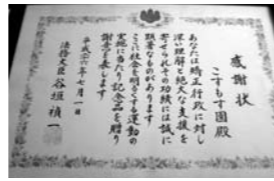 感謝状
こすもす園殿
あなたは矯正行政に対し
深い理解と絶大な支援を
寄せられその功績には誠に
顕著なものがあります
ここに社会を明るくする運動の
実施に当たり記念品を贈り
謝意を表します
平成二六年七月一日
法務大臣 谷垣禎一